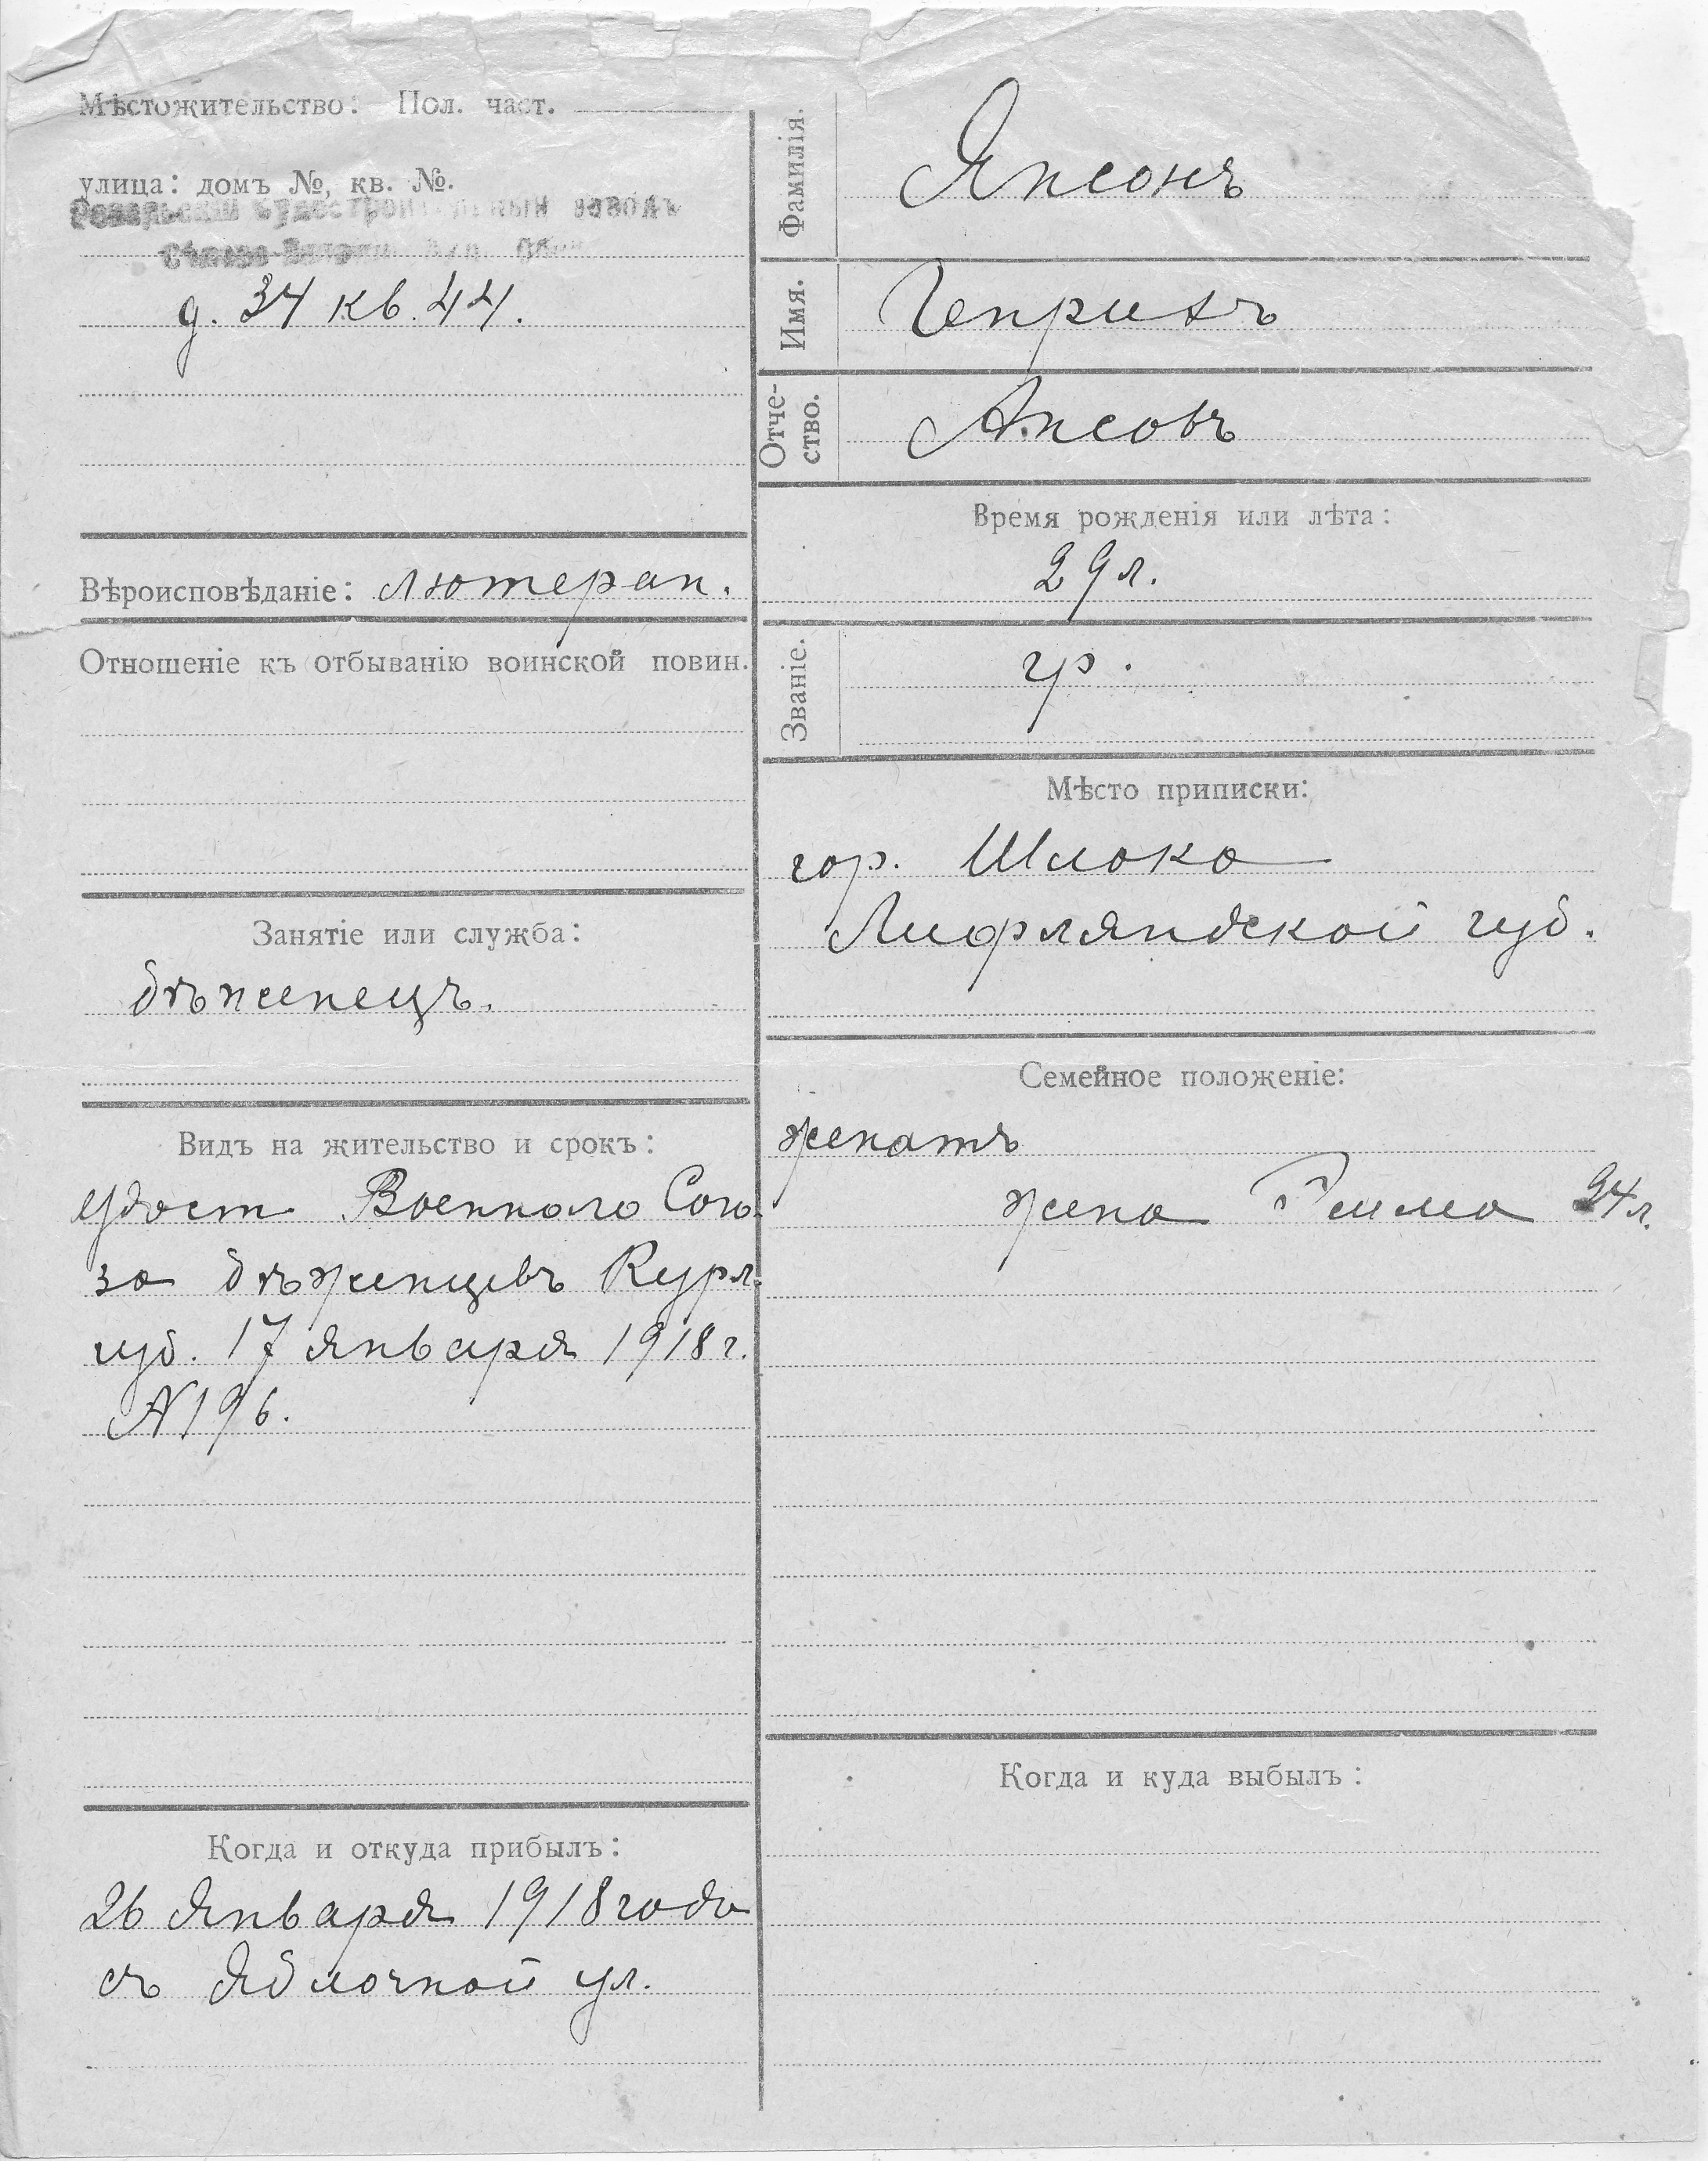 Мѣстожительство: Пол. част.
улица: домъ №, кв. №.
Ревельскій Судостроительный заводъ
д. 34 кв. 44.
Вѣроисповѣданіе: лютеран.
Отношеніе къ отбыванію воинской повин.
Занятіе или служба:
бѣженецъ.
Видъ на жительство и срокъ:
удост. Военнаго Сою
за бѣженцевъ Курл.
губ. 17 января 1918 г.
№ 196.
Когда и откуда прибылъ:
26 Января 1918 года
съ Яблочной ул.
Фамилія.
Янсонъ
Имя.
Генрихъ
Отче-
ство.
Ансовъ
Время рожденія или лѣта:
29 л.
Званіе.
гр.
Мѣсто приписки:
гор. Шлока
Лифляндской губ.
Семейное положеніе:
женатъ
жена 24 л.
Когда и куда выбылъ: